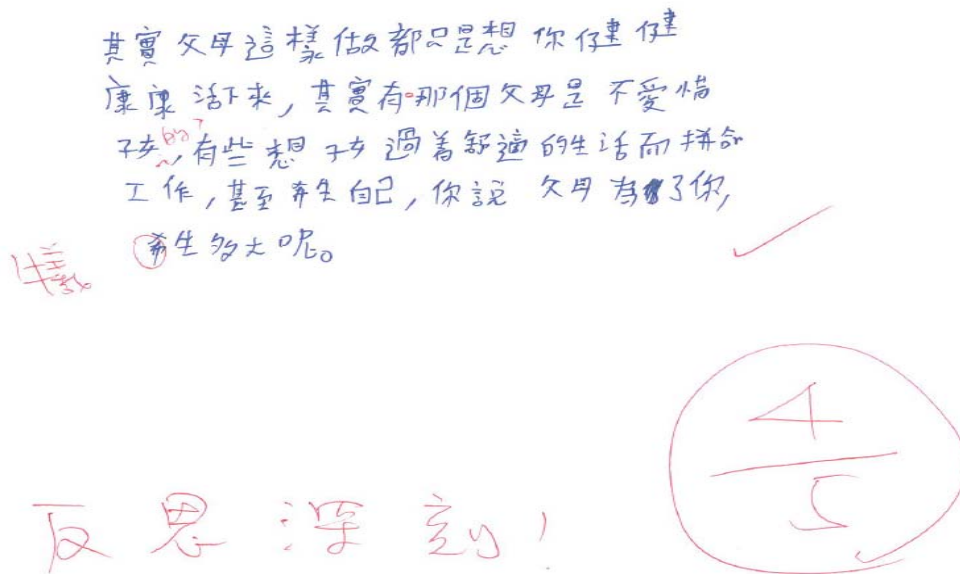 其實父母這樣做都只是想你健健
康康活下來,其實有那個父母是不愛惜
子女的?有些想子女過着舒適的生活而拼命
工作,甚至希生自己,你說父母為了你,
犧 希生多大呢。
4
5
反思深刻!